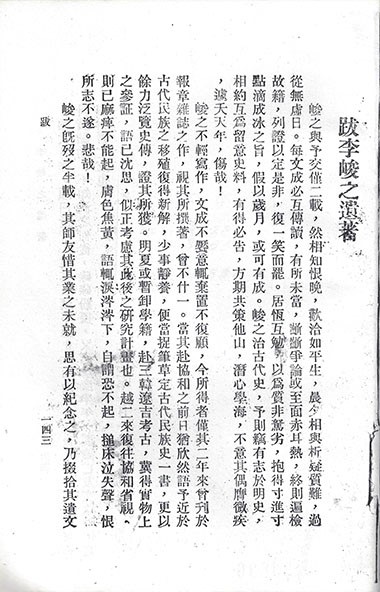 跋李峻之遺著
峻之與予交僅二載，然相知恨晚，歡洽如平生，晨夕相與析疑質難，過
從無虛日。每文成必互傳讀，有所未當，齗齗爭論或至面赤耳熱，終則遍檢
故籍，列證以定是非，復一笑而罷。居恆互勉，以爲質非驽劣，抱得寸進寸
點滴成冰之旨，假以歲月，或可有成。峻之治古代史，予則竊有志於明史，
相約互爲留意史料，有得必告，方期共策他山，潛心學海，不意其偶膺微疾
，遽夭天年，傷哉！
峻之不輕寫作，文成不愜意輒棄置不復顧，今所得者僅其二年來曾刊於
報章雜誌之作，視其所撰著，曾不什一。當其赴協和之前日猶欣然語予近於
古代民族之移殖復得新解，少事靜養，便當捉筆草定古代民族史一書，更以
餘力泛覽史傳，證其所獲。明夏或暫卸學籍，赴三韓遼吉考古，冀得實物上
之參証，語已沈思，似正考慮其此後之研究計畫也。越二來復往協和省視。
則已麻痺不能起，膚色焦黃，語輒淚涔涔下，自謂恐不起，搥床泣失聲，恨
所志不遂。悲哉！
峻之旣歿之半載，其師友惜其業之未就，思有以紀念之，乃掇拾其遺文
跋
一四三